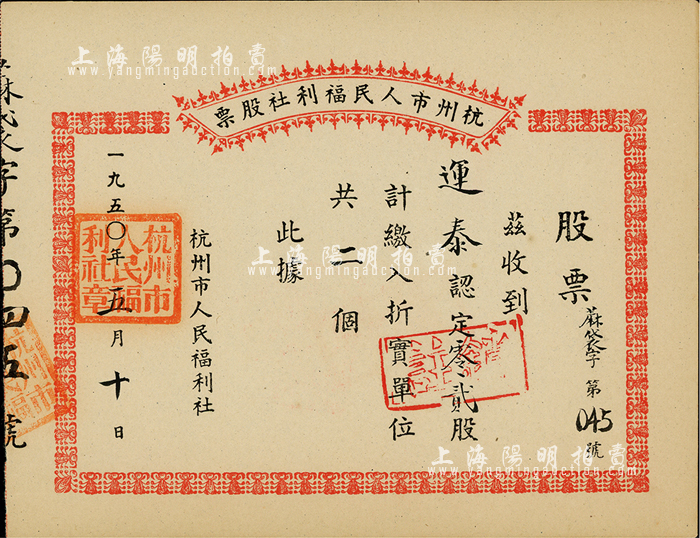 上海陽明拍賣
www.yangmingauction.com
杭州市人民福利社股票
股票
蔴袋字第045號
茲收到
運泰認定零貳股
計繳入折實單位
共二個
此據
杭州市人民福利社
一九五〇年五月十日
杭州市人民福利社章
蔴袋字第〇四五號
上海陽明拍賣
www.yangmingauction.com
上海陽明拍賣
www.yangmingauction.com